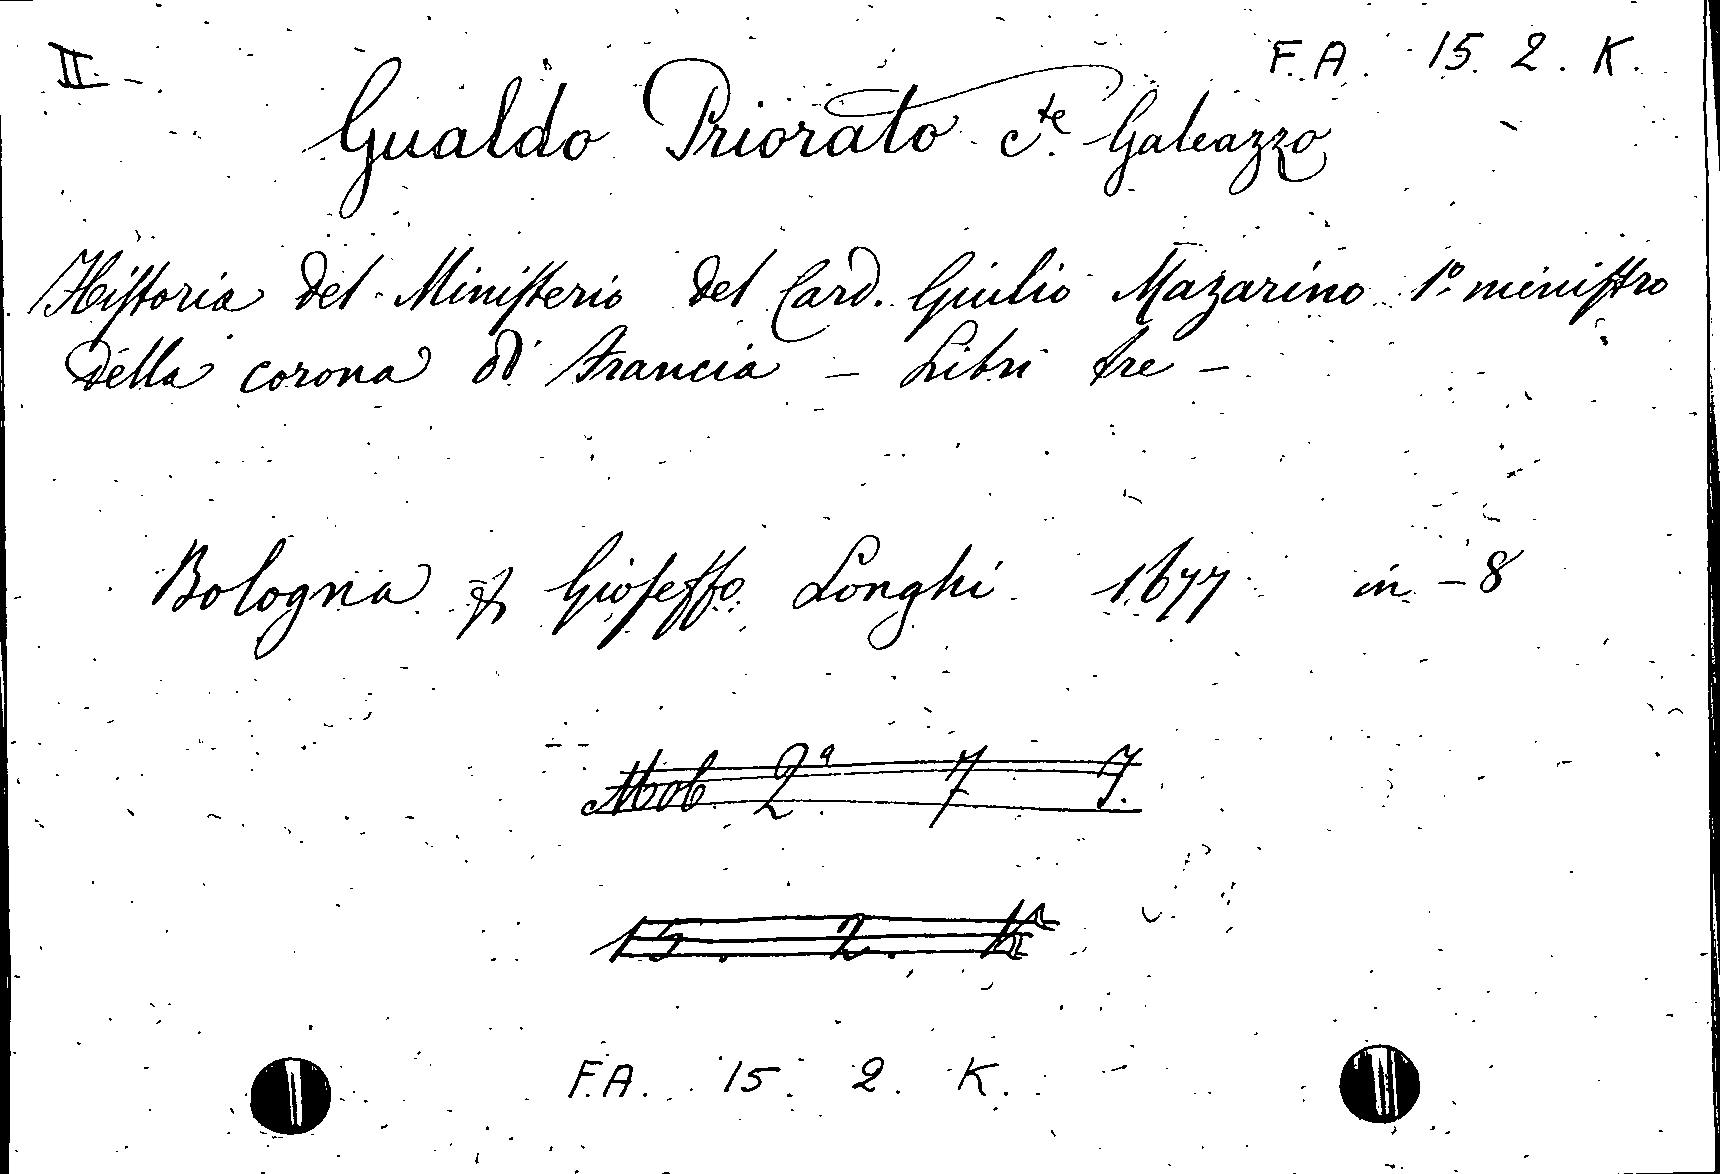 II. - F. A. 15. 2. K.
Gualdo Priorato Cte. Galeazzo
Historia del Ministerio del Card. Giulio Mazarino 1º ministro
della corona di Francia - Libri tre -
Bologna p Gioseffo Longhi 1677 in - 8
Mob 2ª 7 J.
15. 2. K
F.A. 15. 2. K.